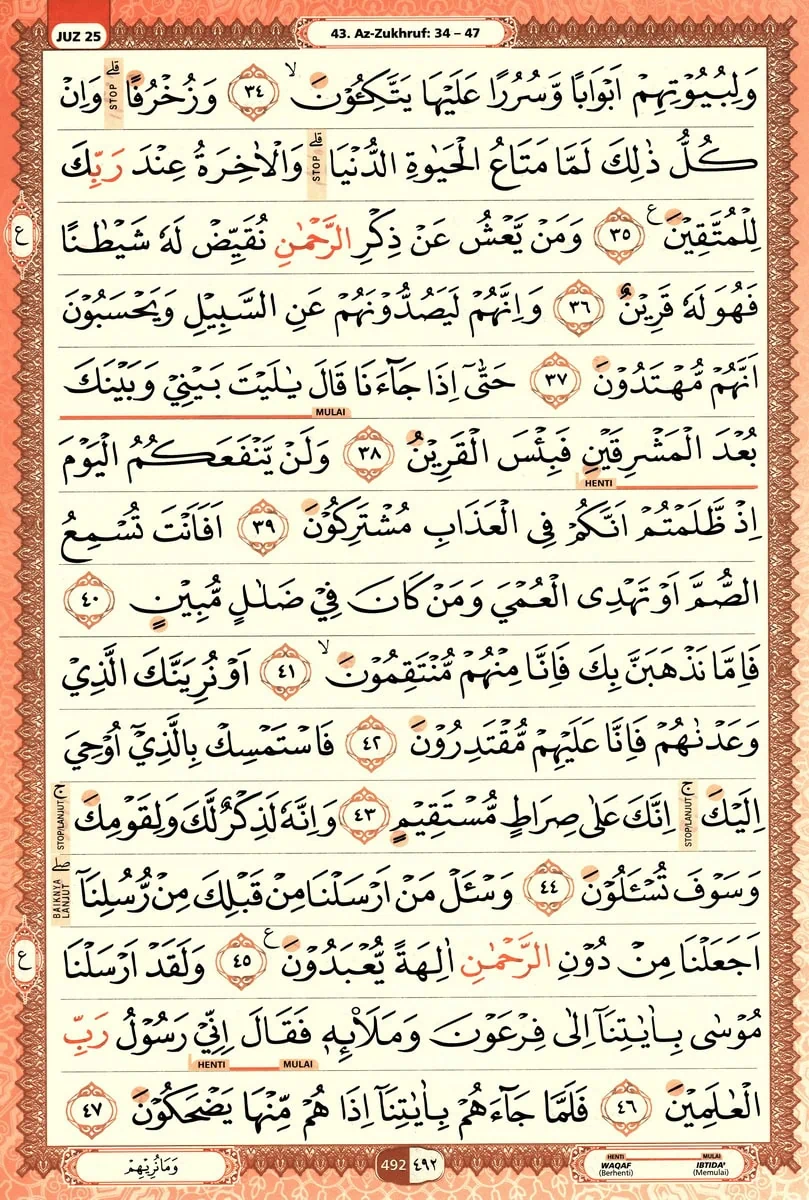 JUZ 25
43. Az-Zukhruf: 34 – 47
وَلِبُيُوْتِهِمْ اَبْوَابًا وَّسُرُرًا عَلَيْهَا يَتَّكِـُٔوْنَۙ ٣٤ وَزُخْرُفًاۗ STOP وَاِنْ
كُلُّ ذٰلِكَ لَمَّا مَتَاعُ الْحَيٰوةِ الدُّنْيَاۗ STOP وَالْاٰخِرَةُ عِنْدَ رَبِّكَ
ع لِلْمُتَّقِيْنَࣖ ٣٥ وَمَنْ يَّعْشُ عَنْ ذِكْرِ الرَّحْمٰنِ نُقَيِّضْ لَهٗ شَيْطٰنًا
فَهُوَ لَهٗ قَرِيْنٌ ٣٦ وَاِنَّهُمْ لَيَصُدُّوْنَهُمْ عَنِ السَّبِيْلِ وَيَحْسَبُوْنَ
اَنَّهُمْ مُّهْتَدُوْنَ ٣٧ حَتّٰىٓ اِذَا جَاۤءَنَا قَالَ يٰلَيْتَ بَيْنِيْ وَبَيْنَكَ
MULAI
بُعْدَ الْمَشْرِقَيْنِ فَبِئْسَ الْقَرِيْنُ ٣٨ وَلَنْ يَّنْفَعَكُمُ الْيَوْمَ
HENTI
اِذْ ظَّلَمْتُمْ اَنَّكُمْ فِى الْعَذَابِ مُشْتَرِكُوْنَ ٣٩ اَفَاَنْتَ تُسْمِعُ
الصُّمَّ اَوْ تَهْدِى الْعُمْيَ وَمَنْ كَانَ فِيْ ضَلٰلٍ مُّبِيْنٍ ٤٠
فَاِمَّا نَذْهَبَنَّ بِكَ فَاِنَّا مِنْهُمْ مُّنْتَقِمُوْنَۙ ٤١ اَوْ نُرِيَنَّكَ الَّذِيْ
وَعَدْنٰهُمْ فَاِنَّا عَلَيْهِمْ مُّقْتَدِرُوْنَ ٤٢ فَاسْتَمْسِكْ بِالَّذِيْٓ اُوْحِيَ
اِلَيْكَۚ STOP/LANJUT اِنَّكَ عَلٰى صِرَاطٍ مُّسْتَقِيْمٍ ٤٣ وَاِنَّهٗ لَذِكْرٌ لَّكَ وَلِقَوْمِكَۚ STOP/LANJUT
وَسَوْفَ تُسْـَٔلُوْنَ ٤٤ وَسْـَٔلْ مَنْ اَرْسَلْنَا مِنْ قَبْلِكَ مِنْ رُّسُلِنَآۖ BAIKNYA LANJUT
ع اَجَعَلْنَا مِنْ دُوْنِ الرَّحْمٰنِ اٰلِهَةً يُّعْبَدُوْنَࣖ ٤٥ وَلَقَدْ اَرْسَلْنَا
مُوْسٰى بِاٰيٰتِنَآ اِلٰى فِرْعَوْنَ وَمَلَا۟ىِٕهٖ فَقَالَ اِنِّيْ رَسُوْلُ رَبِّ
MULAI HENTI
الْعٰلَمِيْنَ ٤٦ فَلَمَّا جَاۤءَهُمْ بِاٰيٰتِنَآ اِذَا هُمْ مِّنْهَا يَضْحَكُوْنَ ٤٧
وَمَانُرِيْهِمْ
492 ٤٩٢
HENTI MULAI
WAQAF IBTIDA'
(Berhenti) (Memulai)